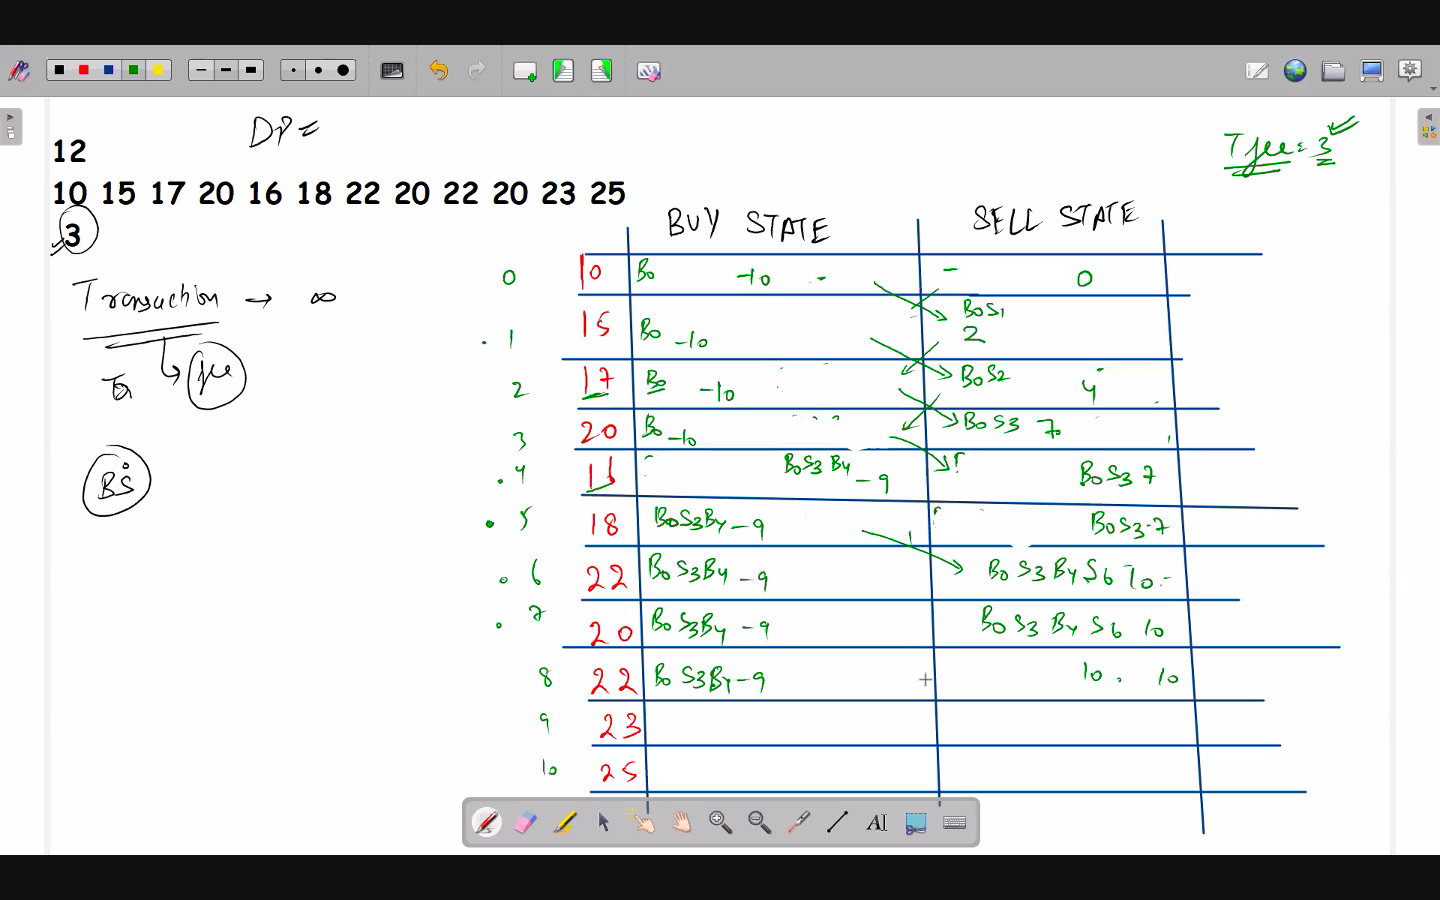 DP =
12
10 15 17 20 16 18 22 20 22 20 23 25
3
T fee = 3
BUY STATE SELL STATE
Transaction → ∞
fee
BS
0 10 B0 -10 - - 0
1 15 B0 -10 B0S1 2
2 17 B0 -10 B0S2 4
3 20 B0 -10 B0S3 7
4 16 B0S3B4 -9 B0S3 7
5 18 B0S3B4 -9 B0S3 7
6 22 B0S3B4 -9 B0S3B4S6 10
7 20 B0S3B4 -9 B0S3B4S6 10
8 22 B0S3B4 -9 10, 10
9 23
10 25
AI